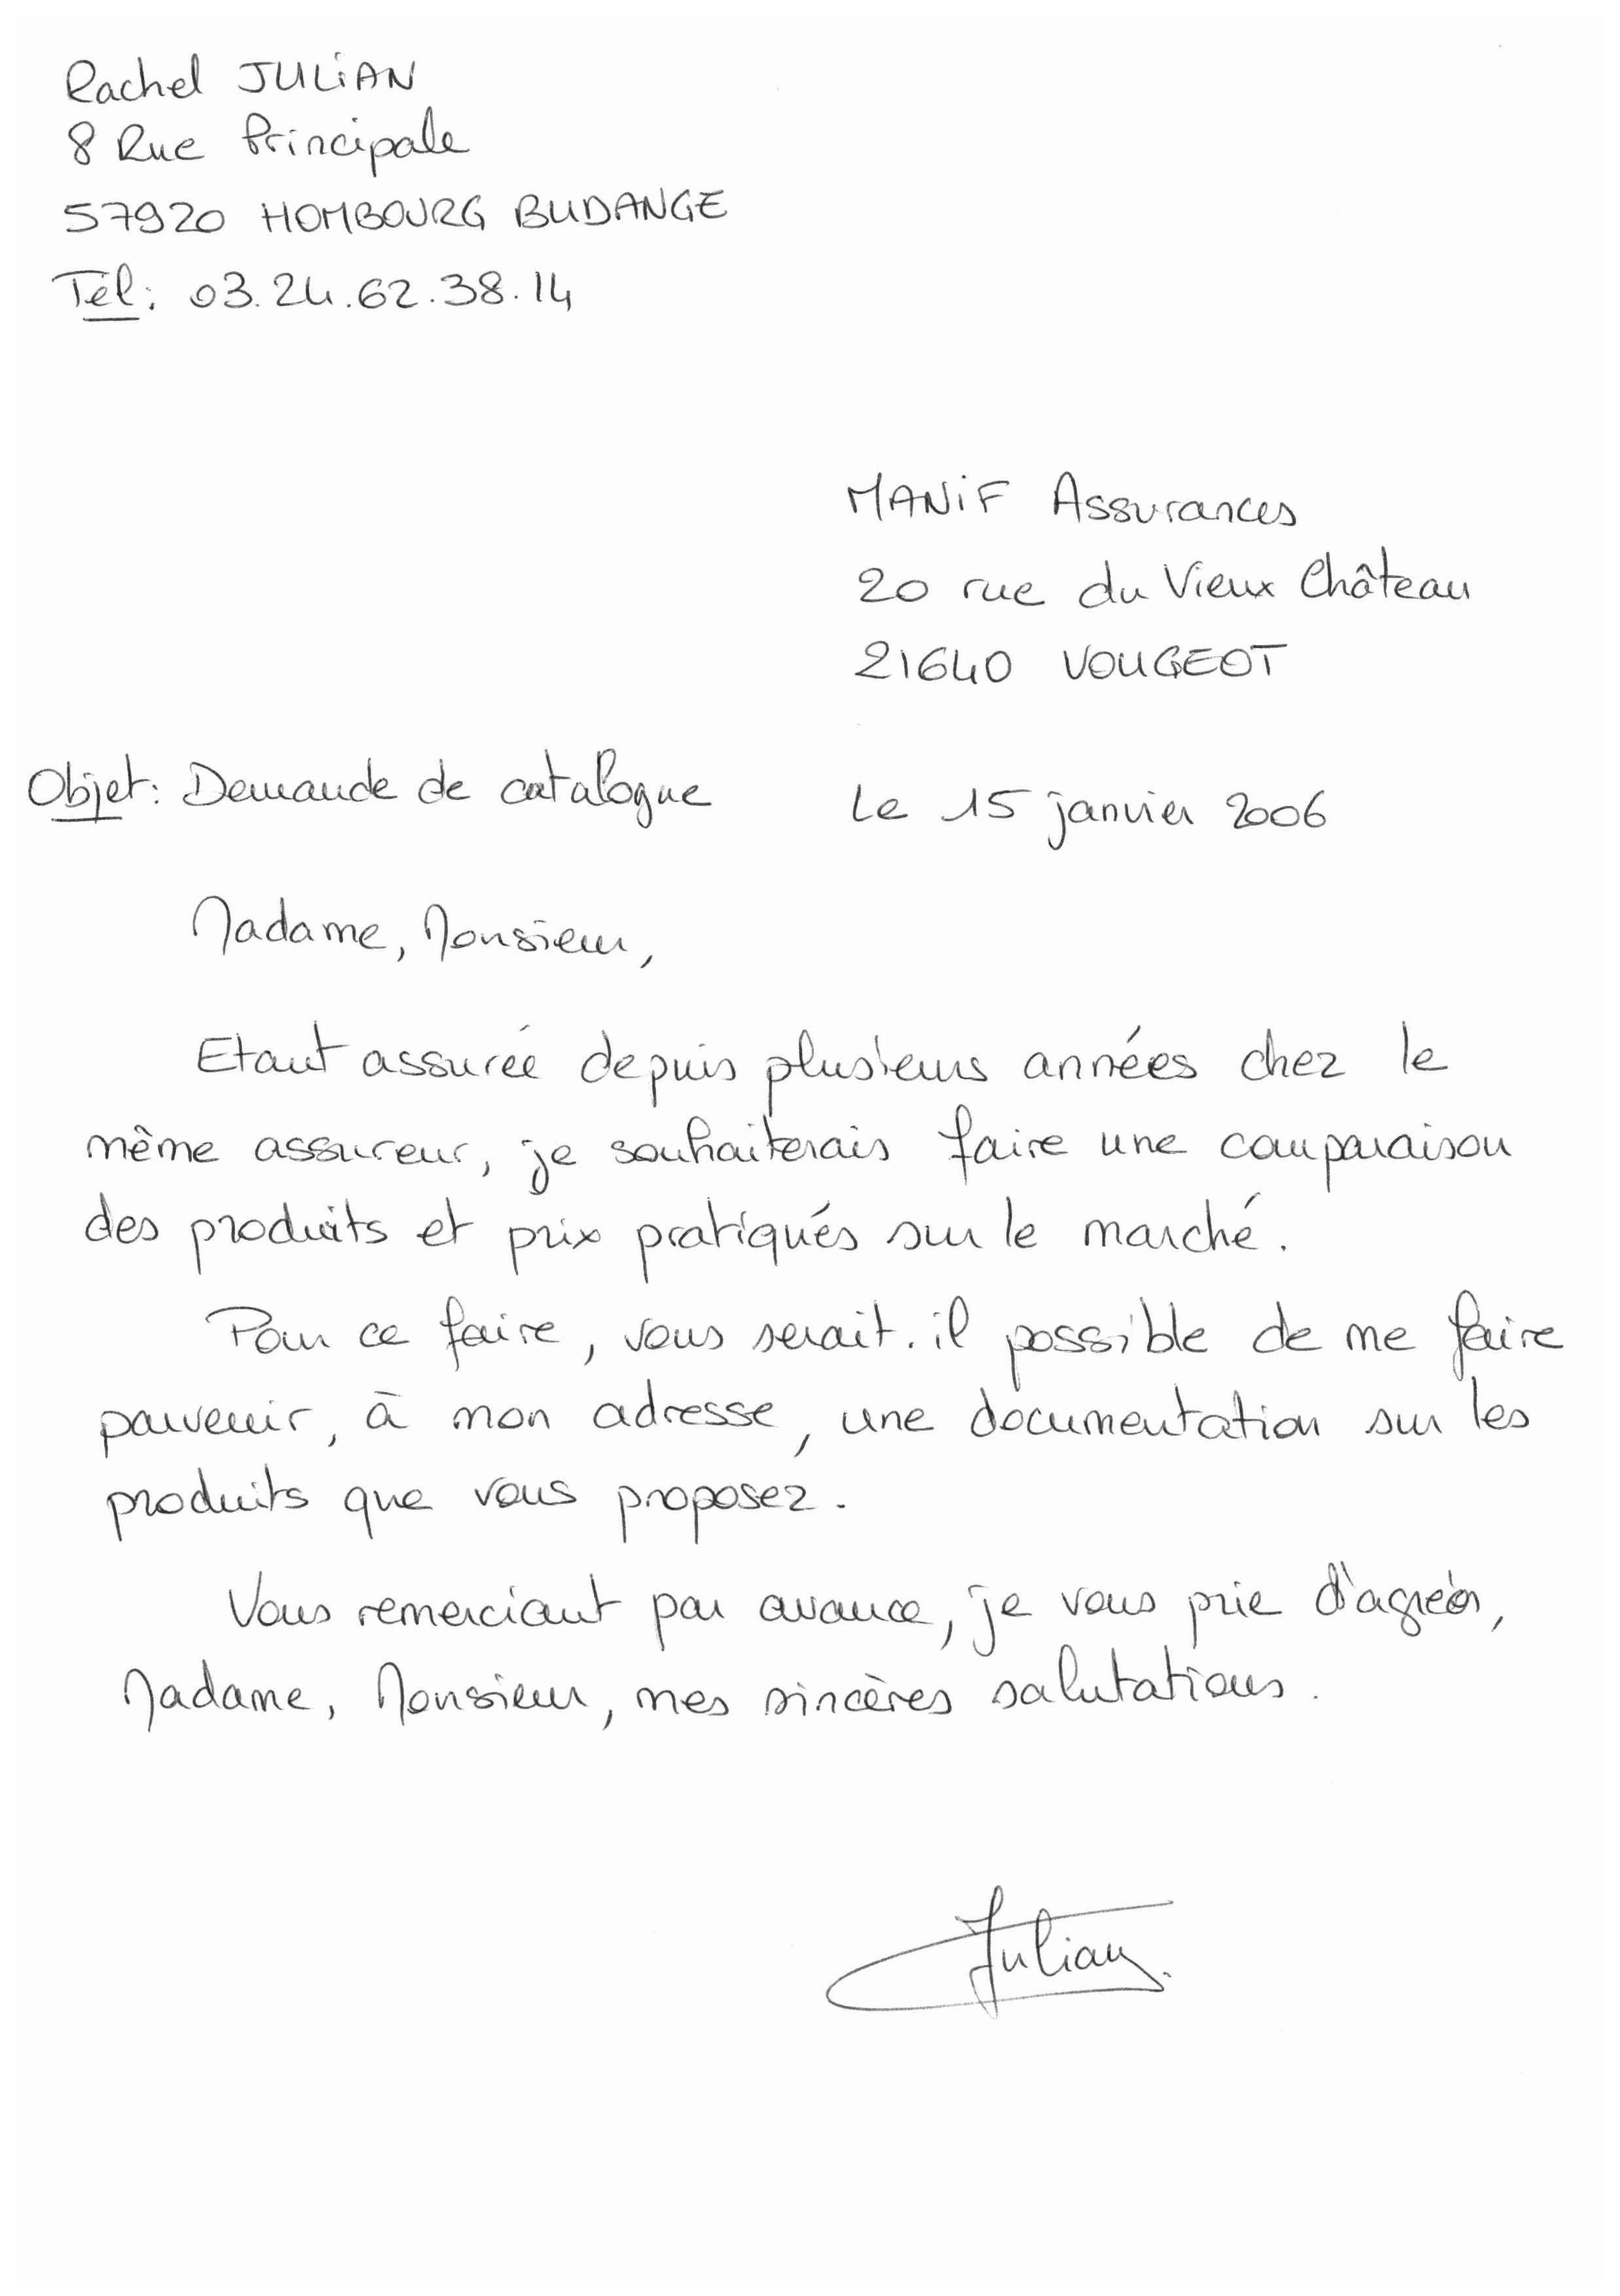 Rachel JULIAN
8 Rue Principale
57920 HOMBOURG BUDANGE
Tél: 03.24.62.38.14
MANIF Assurances
20 rue du Vieux Château
21640 VOUGEOT
Objet: Demande de catalogue
Le 15 janvier 2006
Madame, Monsieur,
Etant assurée depuis plusieurs années chez le
même assureur, je souhaiterais faire une comparaison
des produits et prix pratiqués sur le marché.
Pour ce faire, vous serait-il possible de me faire
parvenir, à mon adresse, une documentation sur les
produits que vous proposez.
Vous remerciant par avance, je vous prie d'agréer,
Madame, Monsieur, mes sincères salutations.
Julian